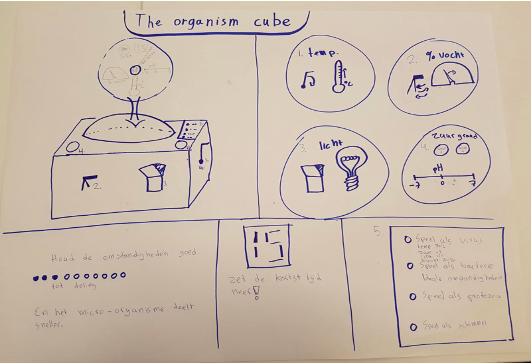 The organism cube
1. temp.
°C
2. % vocht
3. licht
4. zuurgraad
pH
-7 0 7
4.
2.
Houd de omstandigheden goed
tot deling
En het micro-organisme deelt
sneller.
15
zet de kookst tijd
neer!
5.
Speel als virus
Speel als bacterie
Speel als protozoa
Speel als schimmel